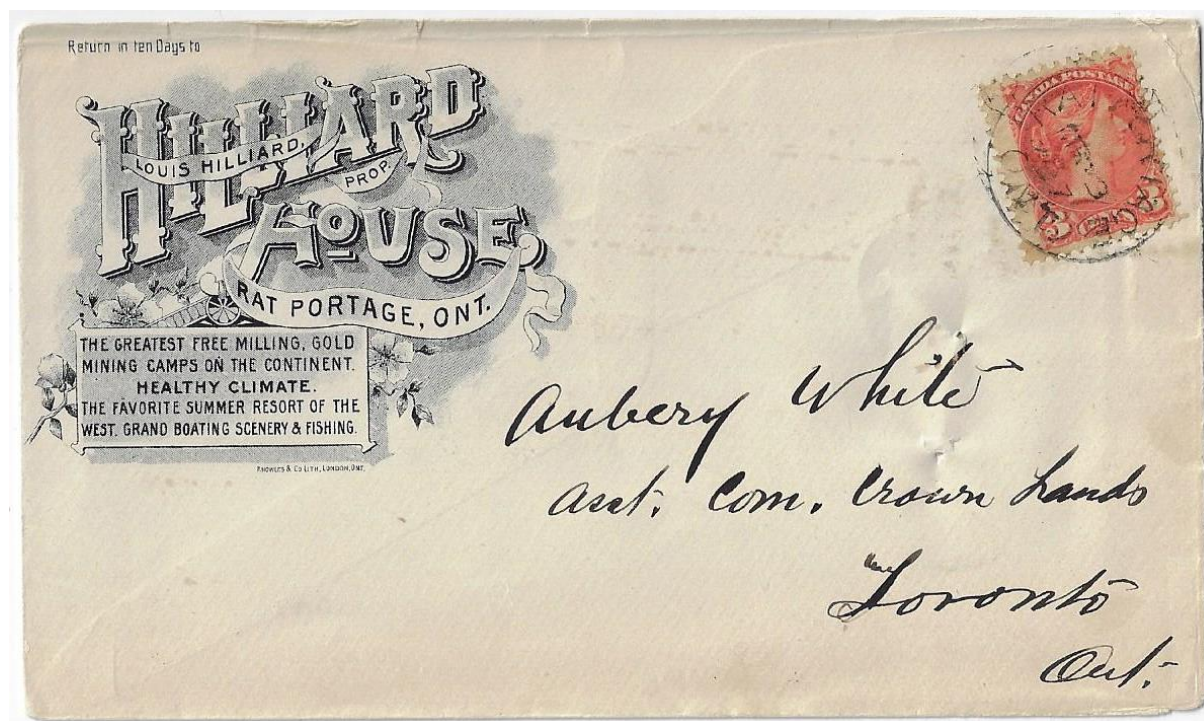 Return in ten Days to
HILLIARD
LOUIS HILLIARD,
PROP.
HOUSE,
RAT PORTAGE, ONT.
THE GREATEST FREE MILLING, GOLD
MINING CAMPS ON THE CONTINENT.
HEALTHY CLIMATE.
THE FAVORITE SUMMER RESORT OF THE
WEST. GRAND BOATING SCENERY & FISHING.
KNOWLES & CO LITH, LONDON, ONT.
CANADA POSTAGE
RAT PORTAGE
3
Aubery White
Asst. Com. Crown Lands
Toronto
Ont.